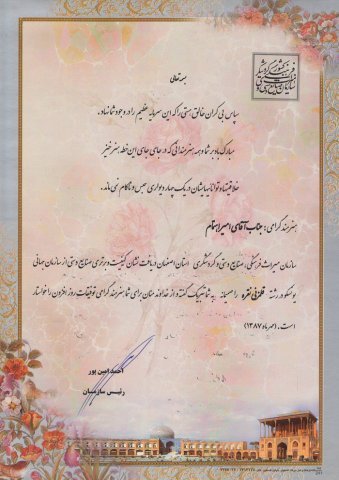 بسمه تعالی
سپاس بی کران خالق هستی را که این سرمایه عظیم را در وجود شما نهاد.
مبارک باد بر شما و همه هنرمندانی که در جای جای این خطه هنر خیز
خلاقیتها و تواناییهایشان در یک چهار دیواری حبس و ناکام نمی ماند.
هنرمند گرامی: جناب آقای امیر اهتمام
سازمان میراث فرهنگی، صنایع دستی و گردشگری استان اصفهان دریافت نشان کیفیت و برتری صنایع دستی از سازمان جهانی
یونسکو در رشته قلمزنی نقره را صمیمانه به شما تبریک گفته و از خداوند منان برای شما هنرمند گرامی توفیقات روز افزون را خواستار
است. (مهرماه ۱۳۸۷)
احمد امین پور
رئیس سازمان